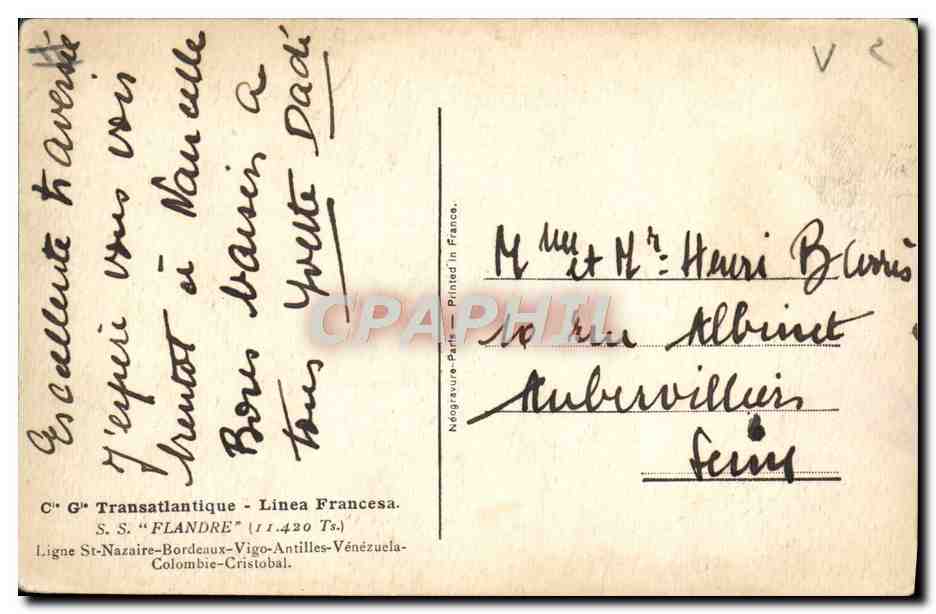 Excellente traversée
J'espère vous vois
bientot à Nancelle
Bons baisers a
tous Yvette Dadé
Cie Gle Transatlantique - Linea Francesa.
S. S. "FLANDRE" (11.420 Ts.)
Ligne St-Nazaire-Bordeaux-Vigo-Antilles-Vénézuela-
Colombie-Cristobal.
Néogravure-Paris — Printed in France.
V
Mme et Mr. Henri
10 rue Albinet
Aubervilliers
Seine
CPAPHIL